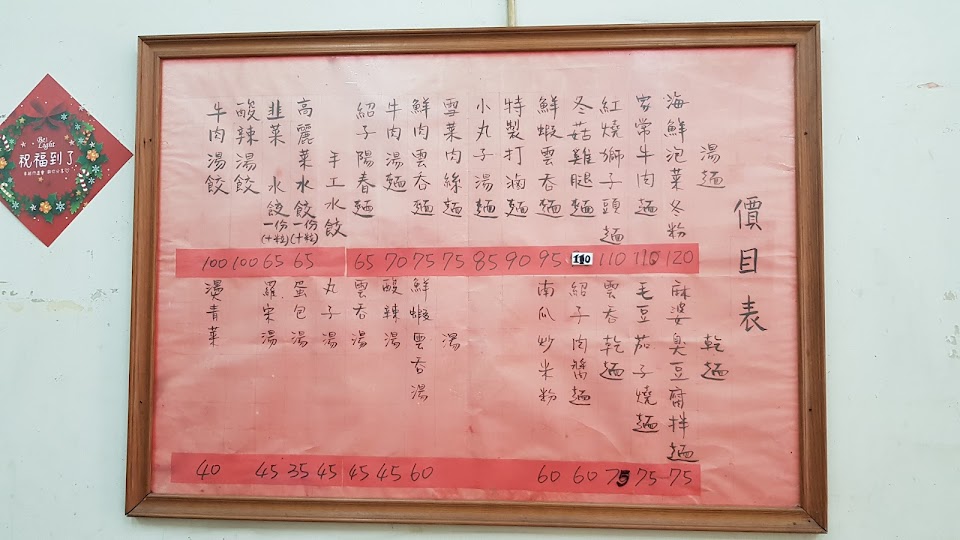 價目表
湯麵
海鮮泡菜冬粉 120
家常牛肉麵 110
紅燒獅子頭麵 110
冬菇雞腿麵 110
鮮蝦雲吞麵 95
特製打滷麵 90
小丸子湯麵 85
雪菜肉絲麵 75
鮮肉雲吞麵 75
牛肉湯麵 70
紹子陽春麵 65
手工水餃
高麗菜水餃一份(十粒) 65
韭菜水餃一份(十粒) 65
酸辣湯餃 100
牛肉湯餃 100
乾麵
麻婆臭豆腐拌麵 75
毛豆茄子燒麵 75
雲吞乾麵 75
紹子肉醬麵 60
南瓜炒米粉 60
湯
鮮蝦雲吞湯 60
酸辣湯 45
雲吞湯 45
丸子湯 45
蛋包湯 35
羅宋湯 45
燙青菜 40
Be Light
祝福到了